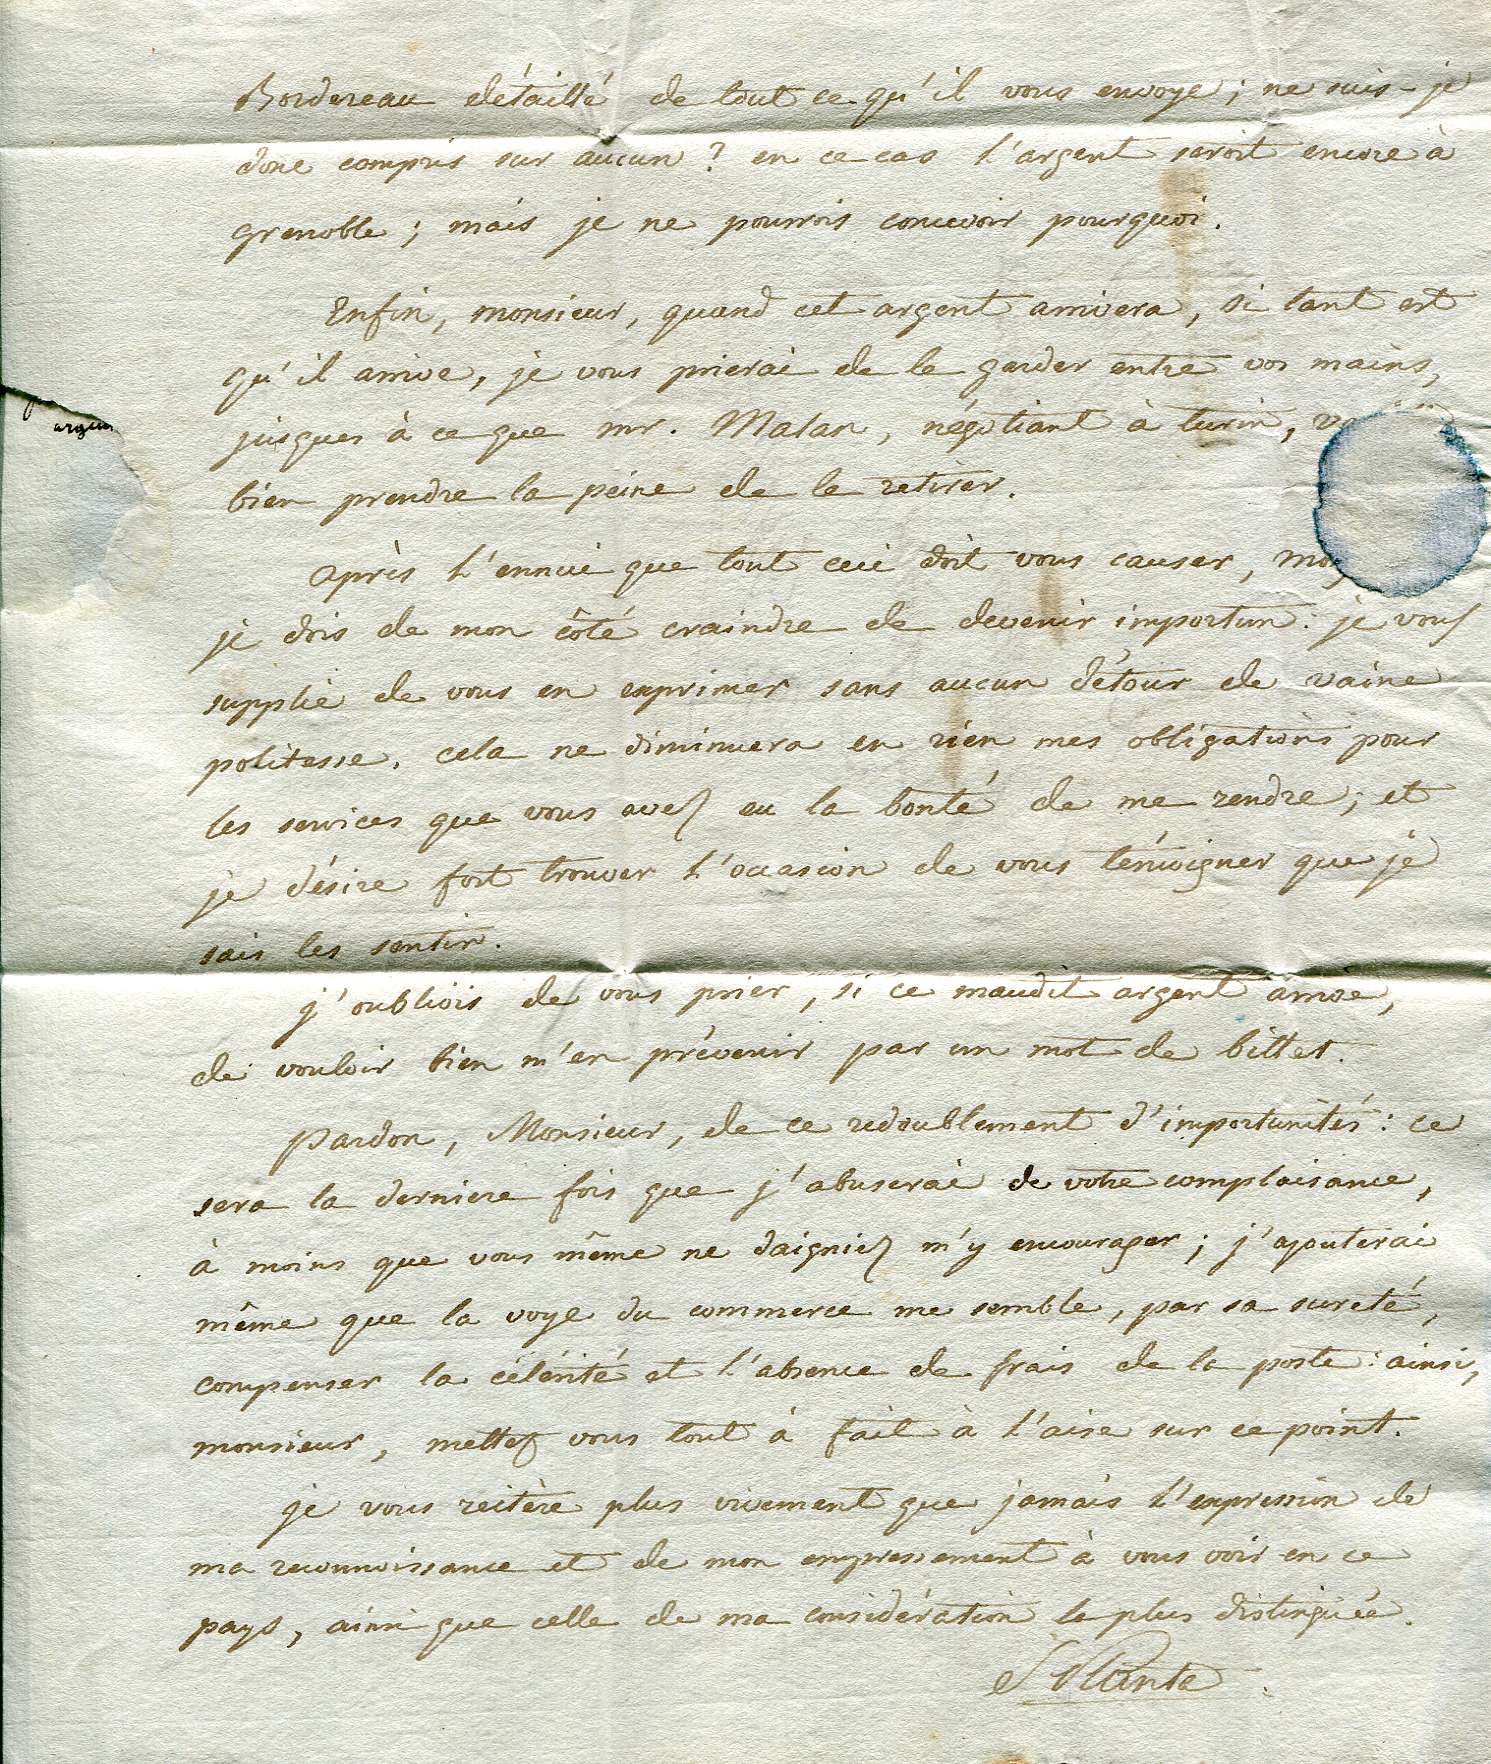 Bordereau détaillé de tout ce qu'il vous envoye ; ne suis-je
donc compris sur aucun ? en ce cas l'argent seroit encore à
grenoble ; mais je ne pourrois concevoir pourquoi.
Enfin, monsieur, quand cet argent arrivera, si tant est
qu'il arrive, je vous prierai de le garder entre vos mains,
jusques à ce que mr. Malan, négotiant à turin,
bien prendre la peine de le retirer.
argen
après l'ennui que tout ceci doit vous causer,
je dois de mon côté craindre de devenir importun. je vous
supplie de vous en exprimer sans aucun détour de vaine
politesse. cela ne diminuera en rien mes obligations pour
les services que vous avez eu la bonté de me rendre ; et
je désire fort trouver l'occasion de vous témoigner que je
sais les sentir.
j'oubliois de vous prier, si ce maudit argent arrive,
de vouloir bien m'en prévenir par un mot de billet.
pardon, Monsieur, de ce redoublement d'importunités : ce
sera la derniere fois que j'abuserai de votre complaisance,
à moins que vous même ne daigniez m'y encourager ; j'ajouterai
même que la voye du commerce me semble, par sa sureté,
compenser la célérité et l'absence de frais de la poste : ainsi,
monsieur, mettez vous tout à fait à l'aise sur ce point.
je vous reitère plus vivement que jamais l'expression de
ma reconnoissance et de mon empressement à vous voir en ce
pays, ainsi que celle de ma considération la plus distinguée.